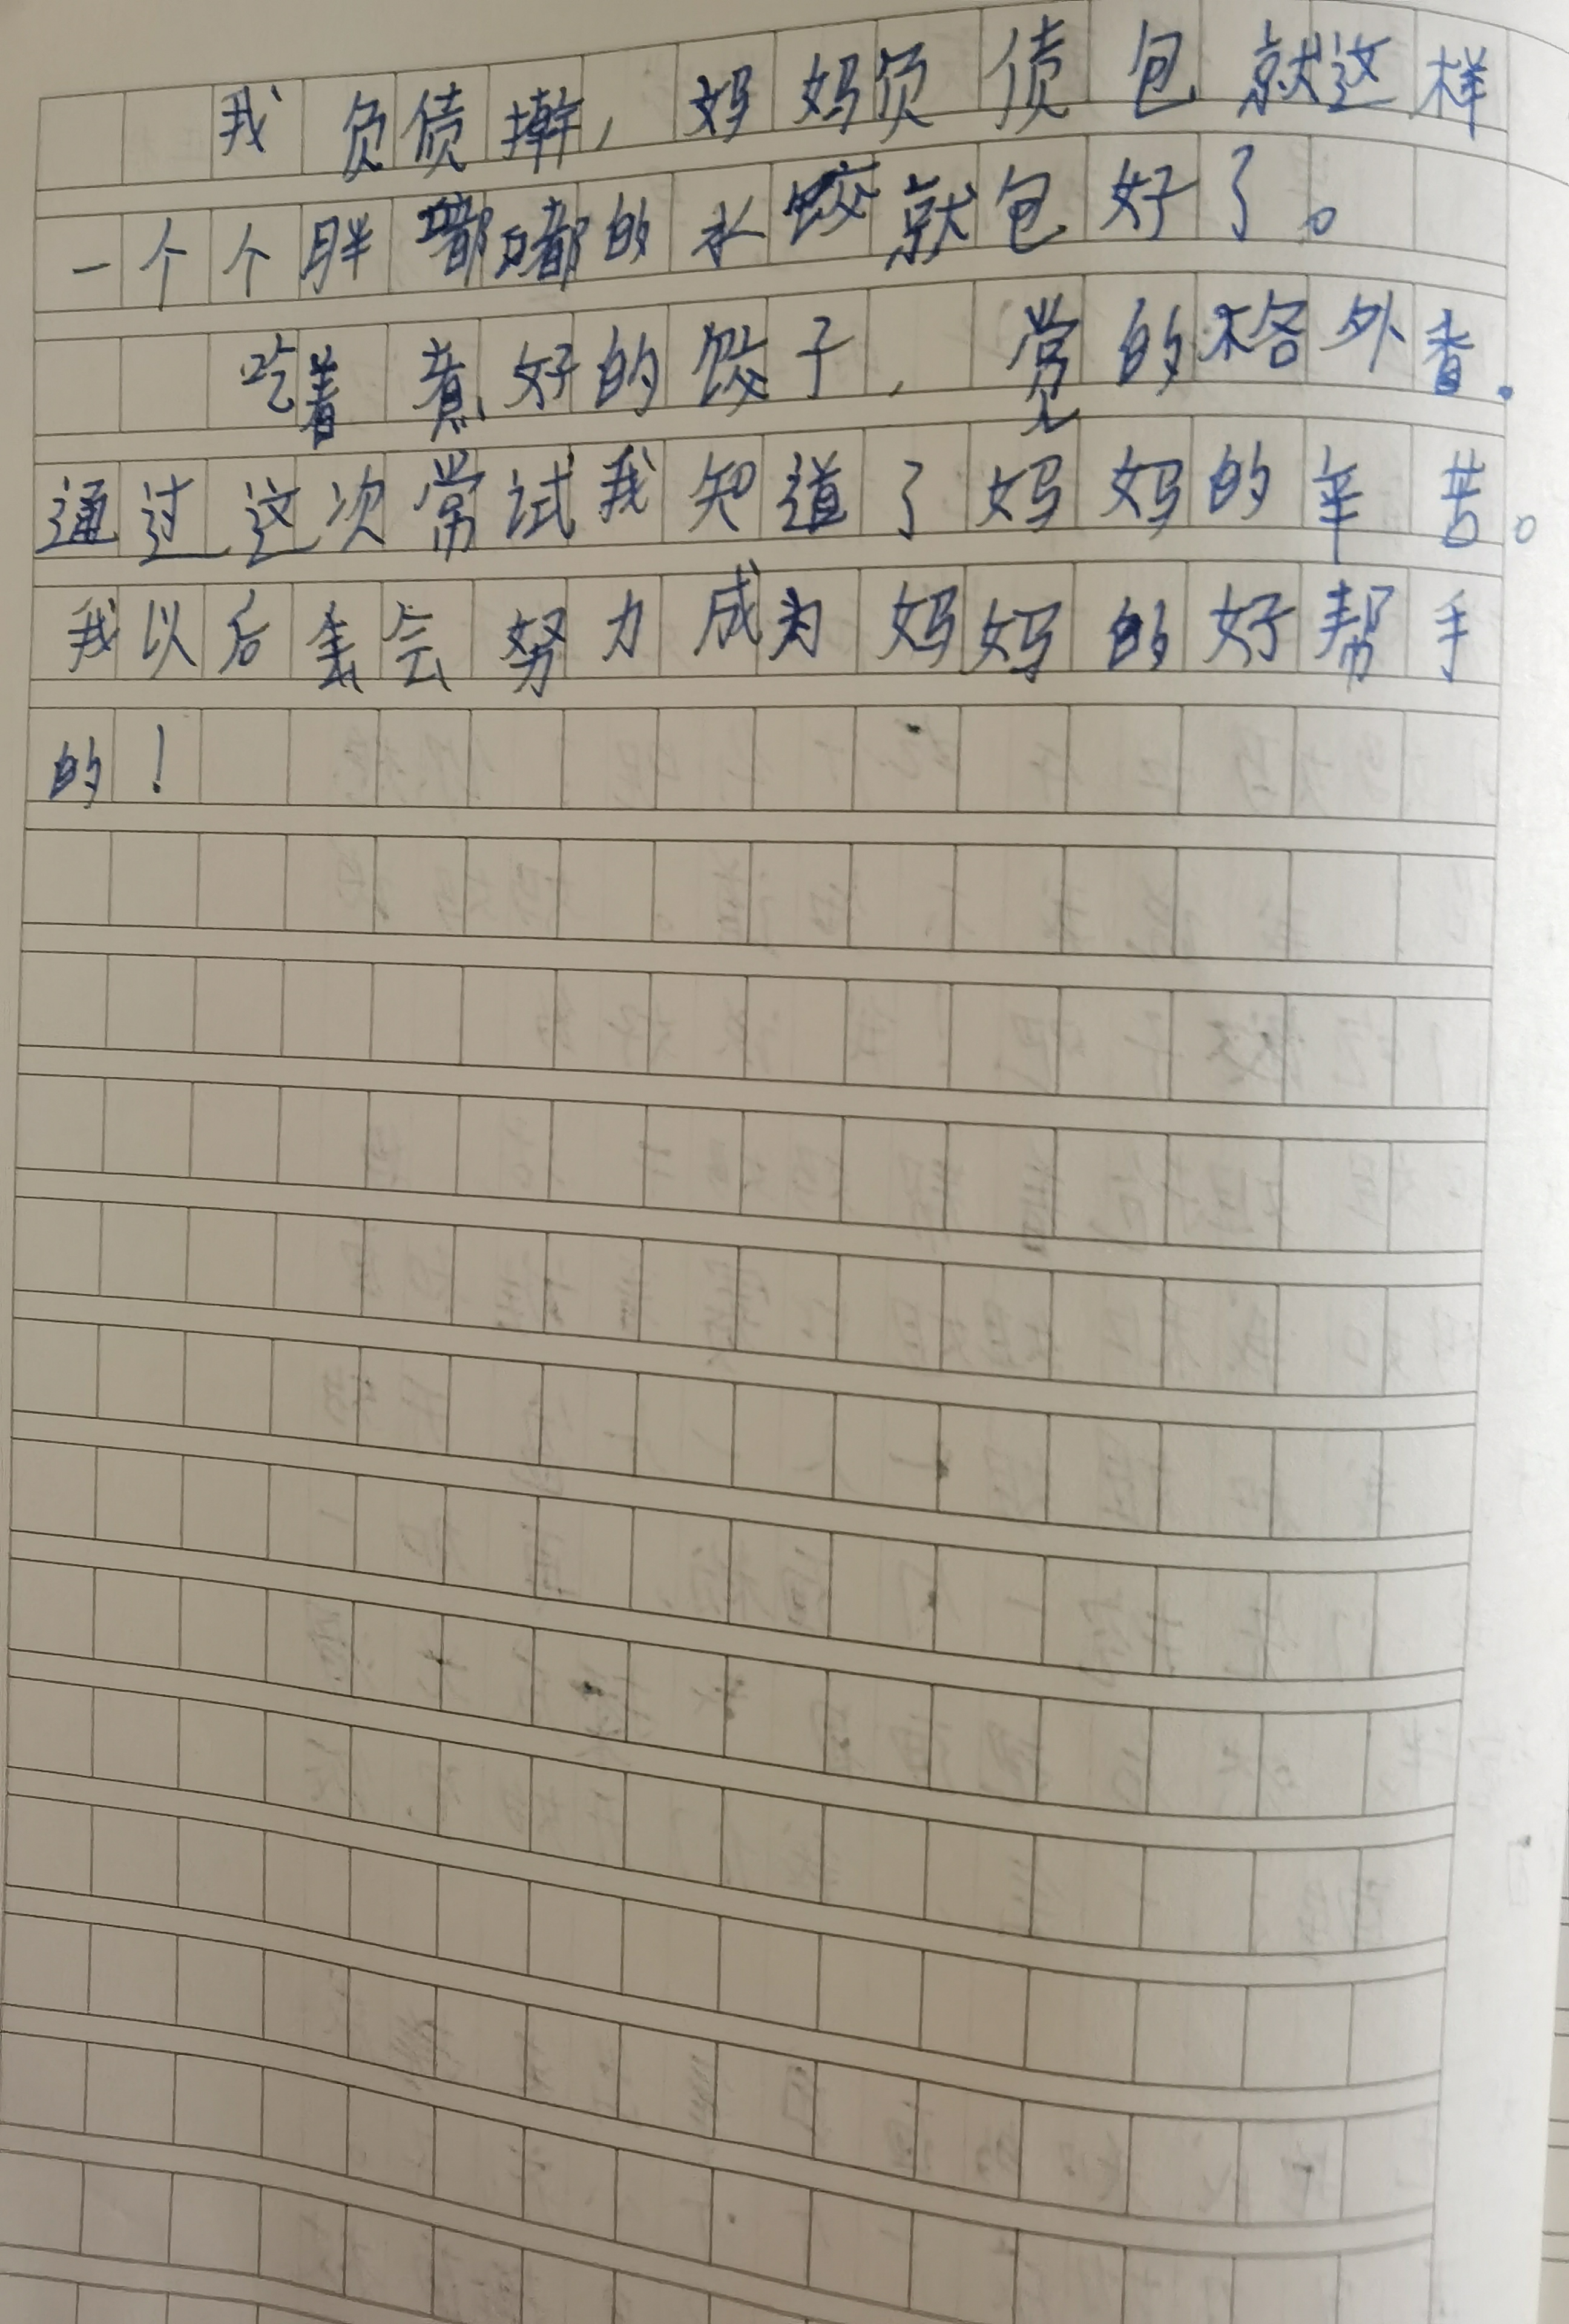 我负债擀，妈妈负债包就这样
一个个胖嘟嘟的水饺就包好了。
吃着煮好的饺子，觉的格外香.
通过这次常试我知道了妈妈的辛苦。
我以后会努力成为妈妈的好帮手
的！